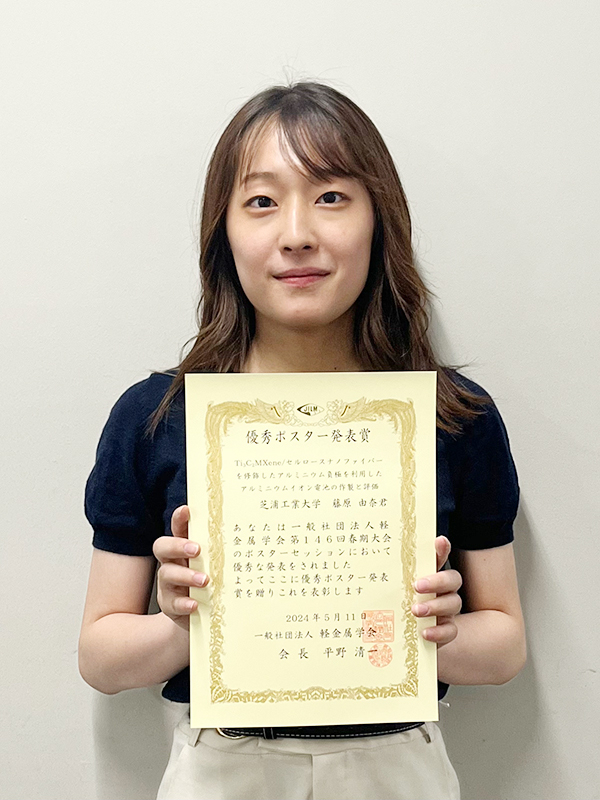 JILM
優秀ポスター発表賞
Ti₃C₂MXene/セルロースナノファイバー
を修飾したアルミニウム負極を利用した
アルミニウムイオン電池の作製と評価
芝浦工業大学 藤原 由奈君
あなたは一般社団法人軽
金属学会第146回春期大会
のポスターセッションにおいて
優秀な発表をされました
よってここに優秀ポスター発表
賞を贈りこれを表彰します
2024年5月11日
一般社団法人 軽金属学会
会長 平野 清一